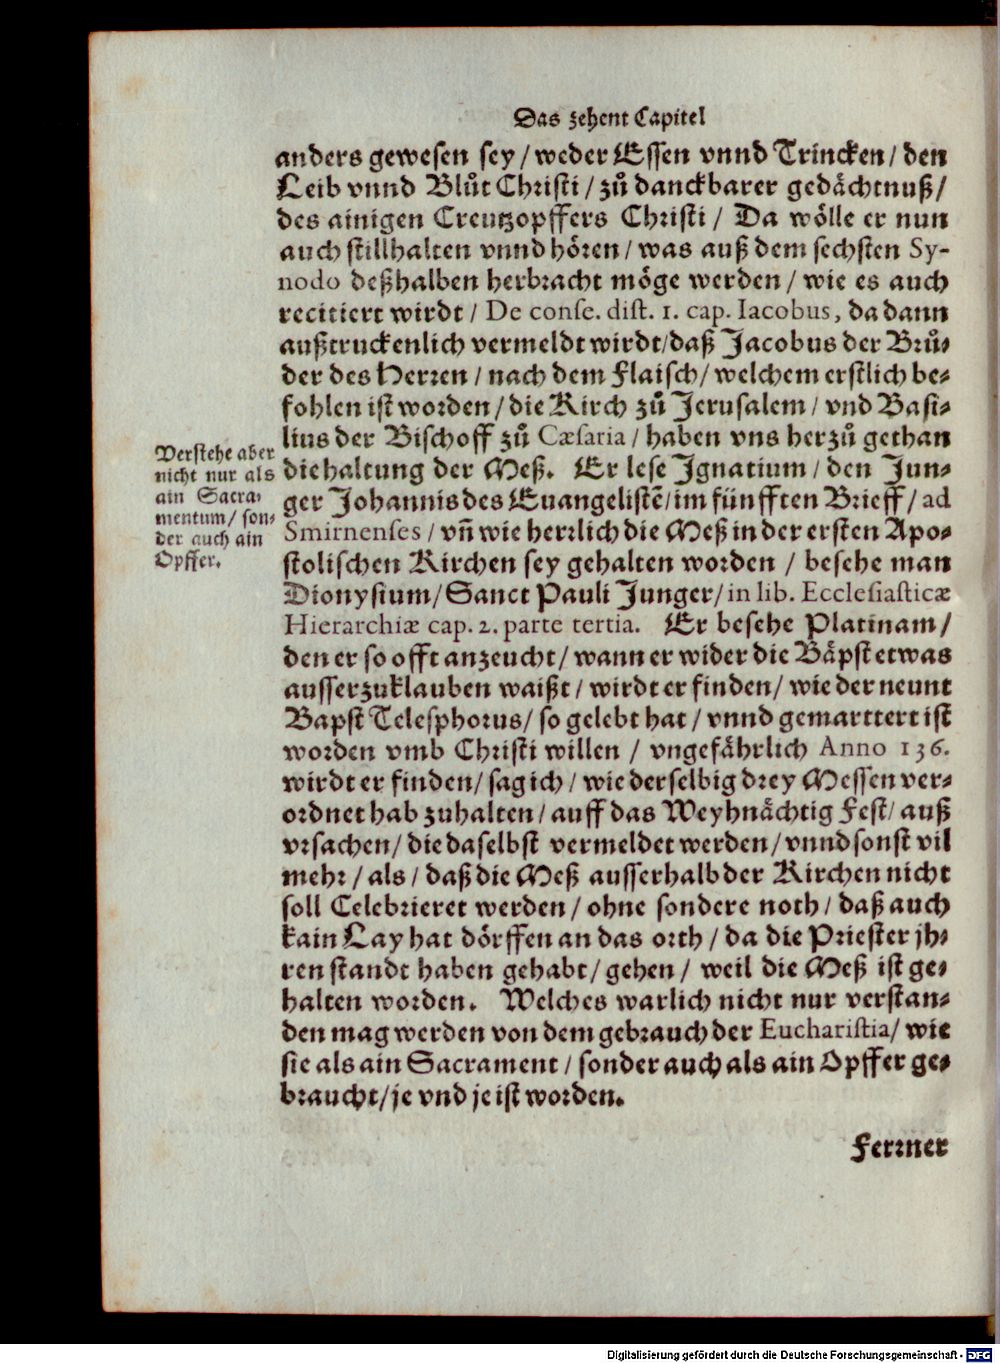 Das zehent Capitel
anders gewesen sey / weder Essen vnnd Trincken / den
Leib vnnd Blůt Christi / zů danckbarer gedächtnuß /
des ainigen Creutzopffers Christi / Da wölle er nun
auch stillhalten vnnd hören / was auß dem sechsten Sy-
nodo deßhalben herbracht möge werden / wie es auch
recitiert wirdt / De conse. dist. 1. cap. Iacobus, da dann
außtruckenlich vermeldt wirdt / daß Jacobus der Brů-
der des Herren / nach dem Flaisch / welchem erstlich be-
fohlen ist worden / die Kirch zů Jerusalem / vnd Basi-
lius der Bischoff zů Cæsaria / haben vns herzů gethan
die haltung der Meß. Er lese Ignatium / den Jun-
ger Johannis des Euangelistẽ / im fünfften Brieff / ad
Smirnenses / vñ wie herrlich die Meß in der ersten Apo-
stolischen Kirchen sey gehalten worden / besehe man
Dionysium / Sanct Pauli Junger / in lib. Ecclesiasticæ
Hierarchiæ cap. 2. parte tertia. Er besehe Platinam /
den er so offt anzeucht / wann er wider die Bäpst etwas
ausserzuklauben waißt / wirdt er finden / wie der neunt
Bapst Telesphorus / so gelebt hat / vnnd gemarttert ist
worden vmb Christi willen / vngefährlich Anno 136.
wirdt er finden / sag ich / wie derselbig drey Messen ver-
ordnet hab zuhalten / auff das Weyhnächtig Fest / auß
vrsachen / die daselbst vermeldet werden / vnnd sonst vil
mehr / als / daß die Meß ausserhalb der Kirchen nicht
soll Celebrieret werden / ohne sondere noth / daß auch
kain Lay hat dörffen an das orth / da die Priester jh-
ren standt haben gehabt / gehen / weil die Meß ist ge-
halten worden. Welches warlich nicht nur verstan-
den mag werden von dem gebrauch der Eucharistia / wie
sie als ain Sacrament / sonder auch als ain Opffer ge-
braucht / je vnd je ist worden.
Verstehe aber
nicht nur als
ain Sacra-
mentum / son-
der auch ain
Opffer.
Ferrner
Digitalisierung gefördert durch die Deutsche Forschungsgemeinschaft - DFG